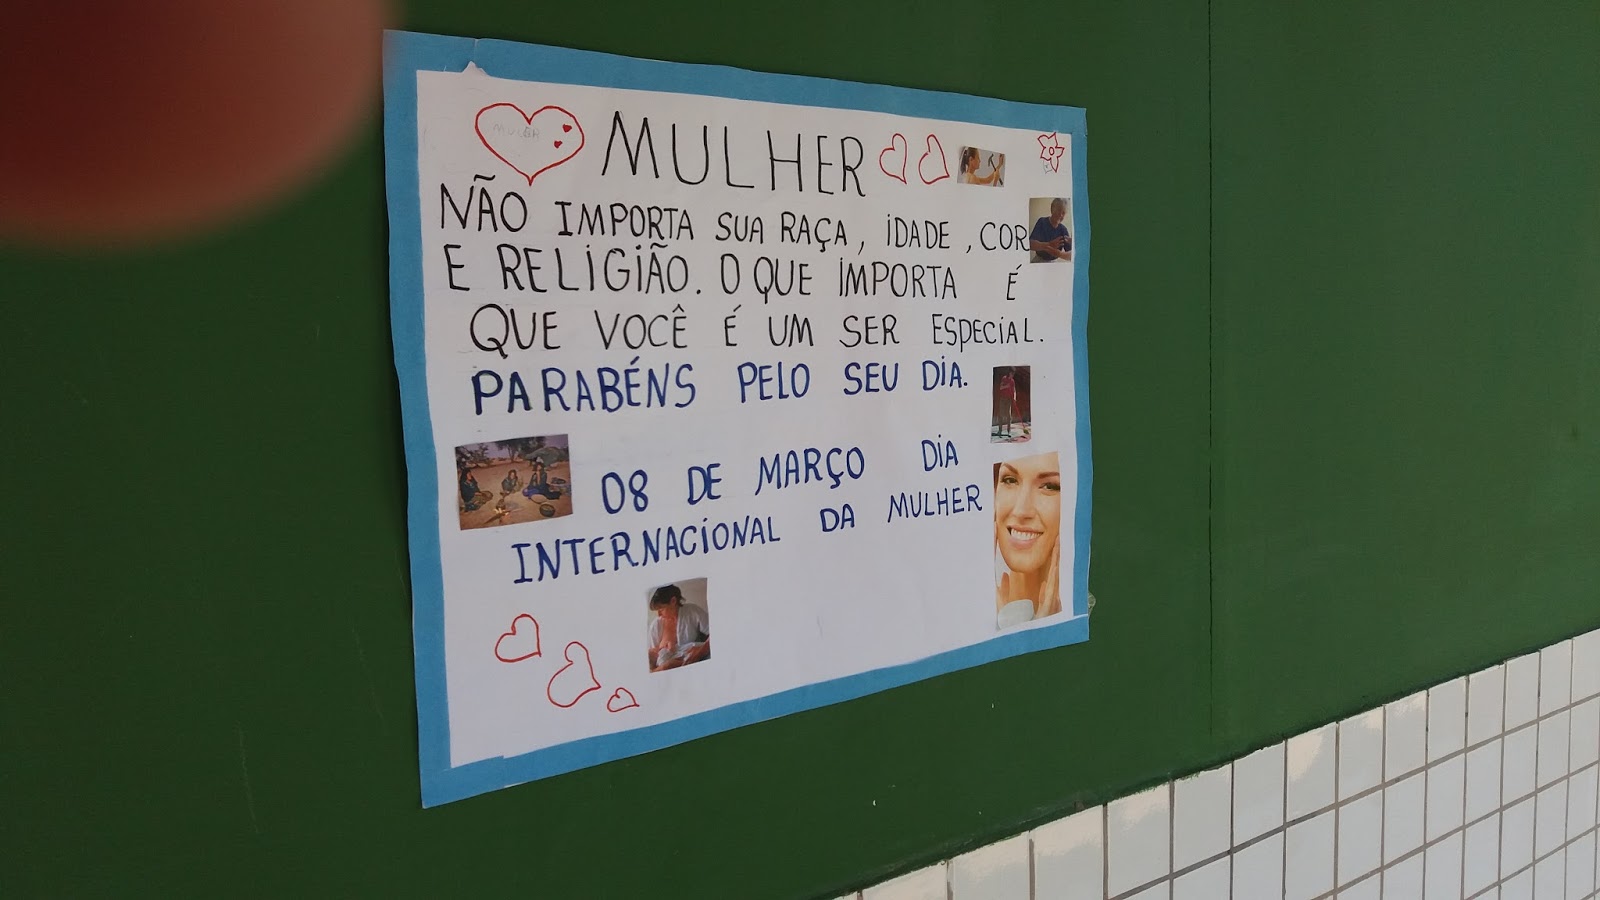 MULHER
NÃO IMPORTA SUA RAÇA, IDADE, COR
E RELIGIÃO. O QUE IMPORTA É
QUE VOCÊ É UM SER ESPECIAL.
PARABÉNS PELO SEU DIA.
08 DE MARÇO DIA
INTERNACIONAL DA MULHER